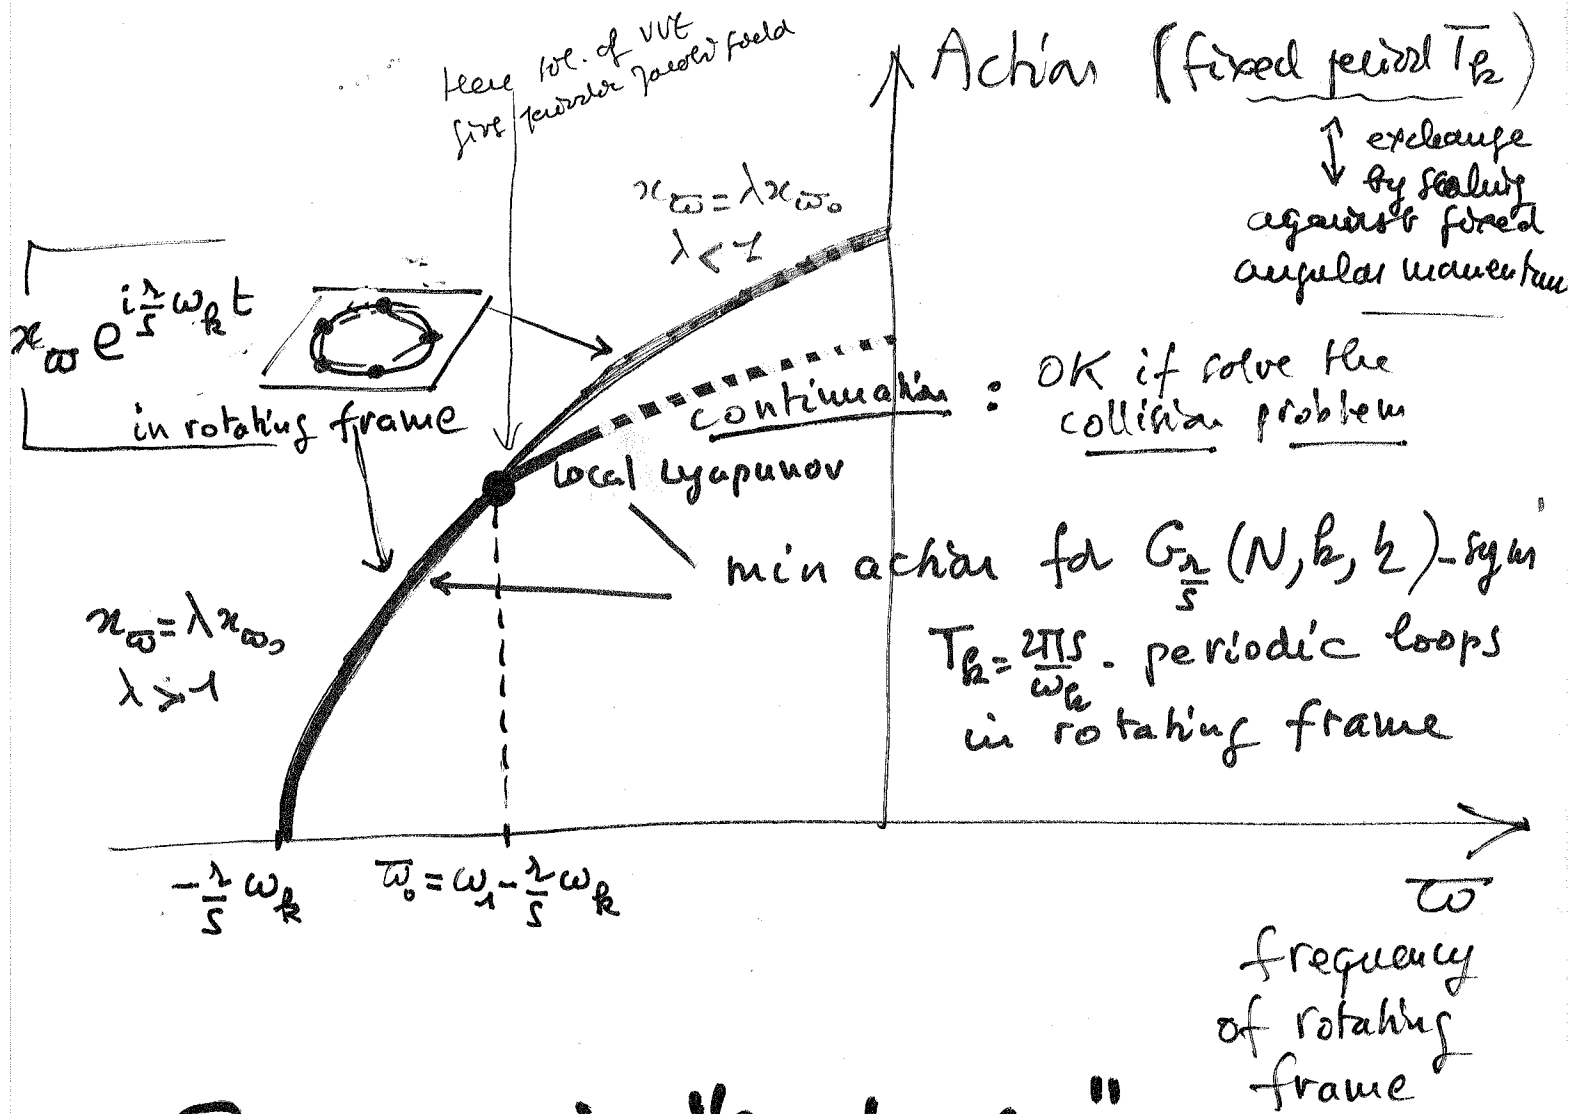 Here sol. of VVE
give periodic Jacobi field
Action (fixed period T_k)
↕ exchange
by scaling
against fixed
angular momentum
x_ϖ = λx_ϖ₀
λ < 1
x_ϖ e^{i r/s ω_k t}
in rotating frame
continuation : OK if solve the
collision problem
local Lyapunov
min action for G_{r/s}(N, k, η)-sym
T_k = 2πs/ω_k - periodic loops
in rotating frame
x_ϖ = λx_ϖ₀
λ > 1
-r/s ω_k
ϖ₀ = ω₁ - r/s ω_k
ϖ
frequency
of rotating
frame